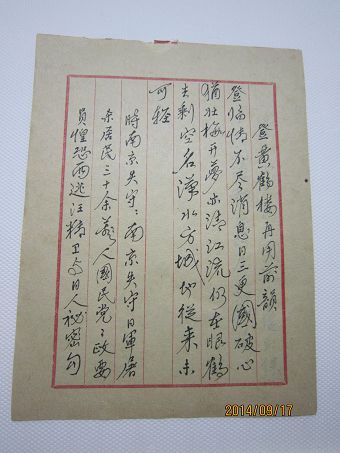 登黄鹤楼再用前韻
登临情不尽消息日三更國破心
猶壯梅开夢亦清江流仍在眼鶴
去剩空名漢水方城地從来未
可轻
時南京失守南京失守日軍屠
杀居民三十余萬人國民党政要
員惶恐西逃汪精卫与日人秘密勾
2014/09/17